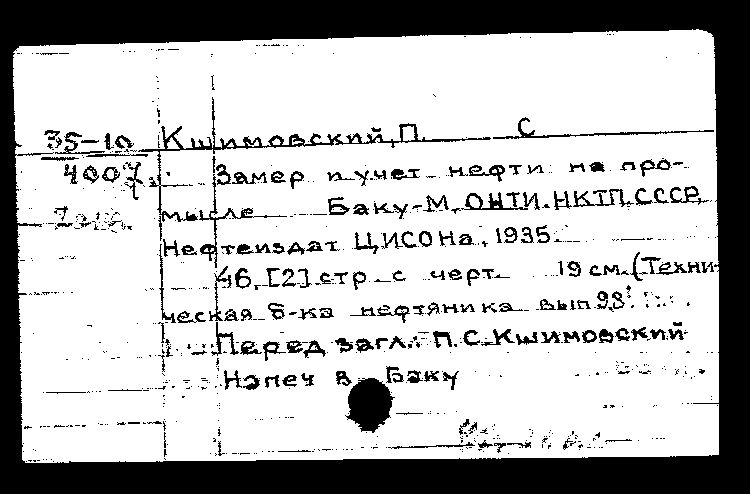 35-10 Кшимовский, П. С
4007
Замер и учет нефти на про-
мысле Баку-М, ОНТИ. НКТП. СССР,
Нефтеиздат ЦИСОНа, 1935.
46, [2] стр. с черт. 19 см. (Техни-
ческая б-ка нефтяника вып 98
Перед загл.: П. С. Кшимовский
Напеч в Баку